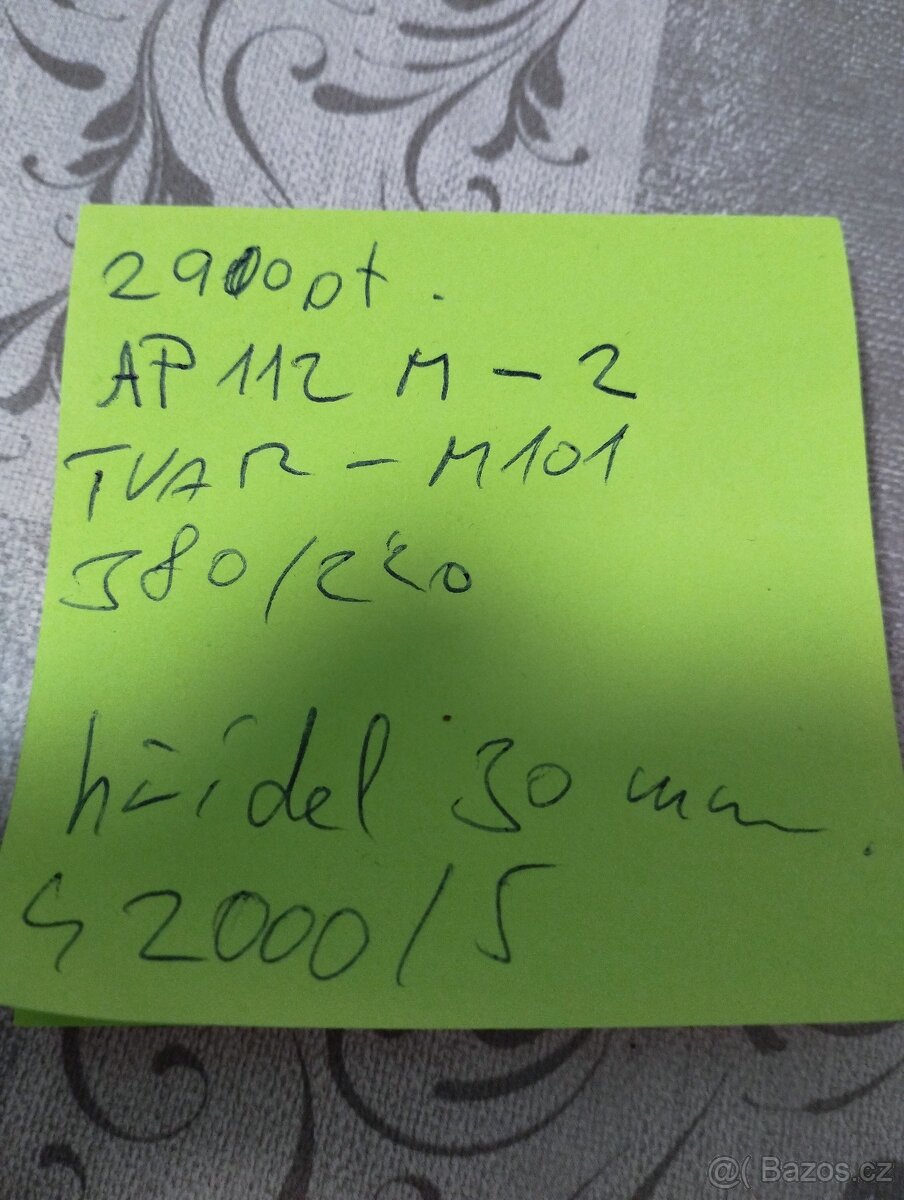 2900 ot.
AP 112 M - 2
TVAR - M101
380/220
hřídel 30 mm.
42000/5
@( Bazos.cz